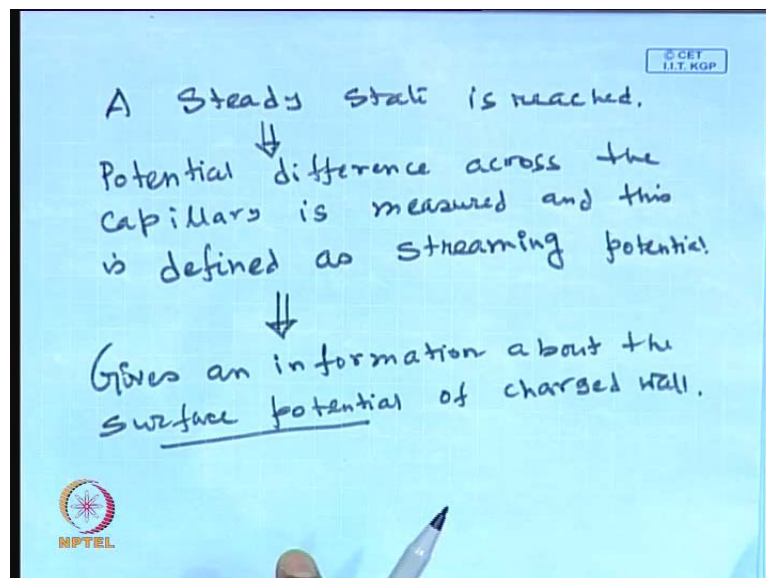 © CET
I.I.T. KGP
A Steady State is reached.
⇓
Potential difference across the
capillary is measured and this
is defined as streaming potential.
⇓
Gives an information about the
surface potential of charged wall.
NPTEL